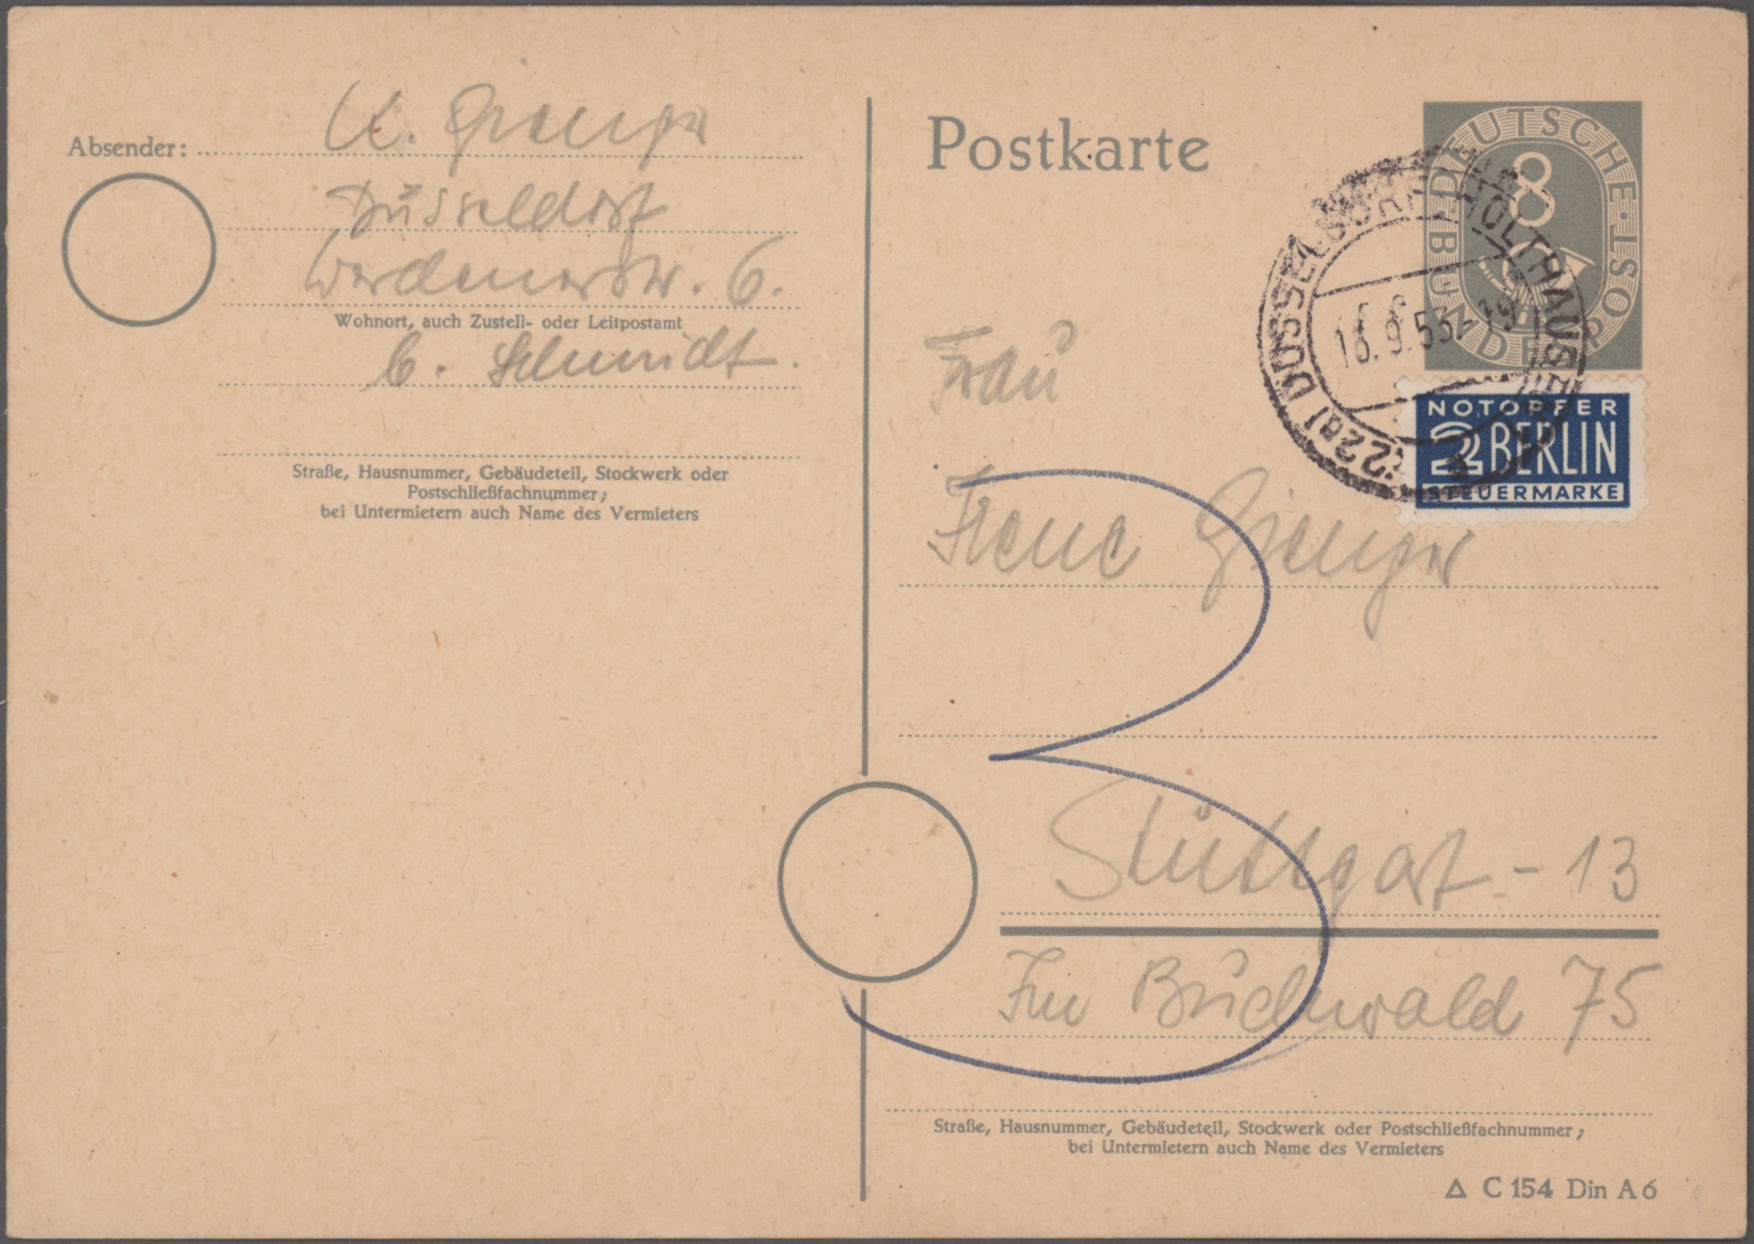 Absender: U. Grienger
Düsseldorf
Werdenerstr. 6.
Wohnort, auch Zustell- oder Leitpostamt
b. Schmidt.
Straße, Hausnummer, Gebäudeteil, Stockwerk oder
Postschließfachnummer;
bei Untermietern auch Name des Vermieters
Postkarte
DEUTSCHE BUNDESPOST
8
(22a) DÜSSELDORF-HOLTHAUSEN
9.53.-19
NOTOPFER
2 BERLIN
STEUERMARKE
Frau
Irene Grienger
3
Stuttgart - 13
Im Buchwald 75
Straße, Hausnummer, Gebäudeteil, Stockwerk oder Postschließfachnummer;
bei Untermietern auch Name des Vermieters
△ C 154 Din A 6